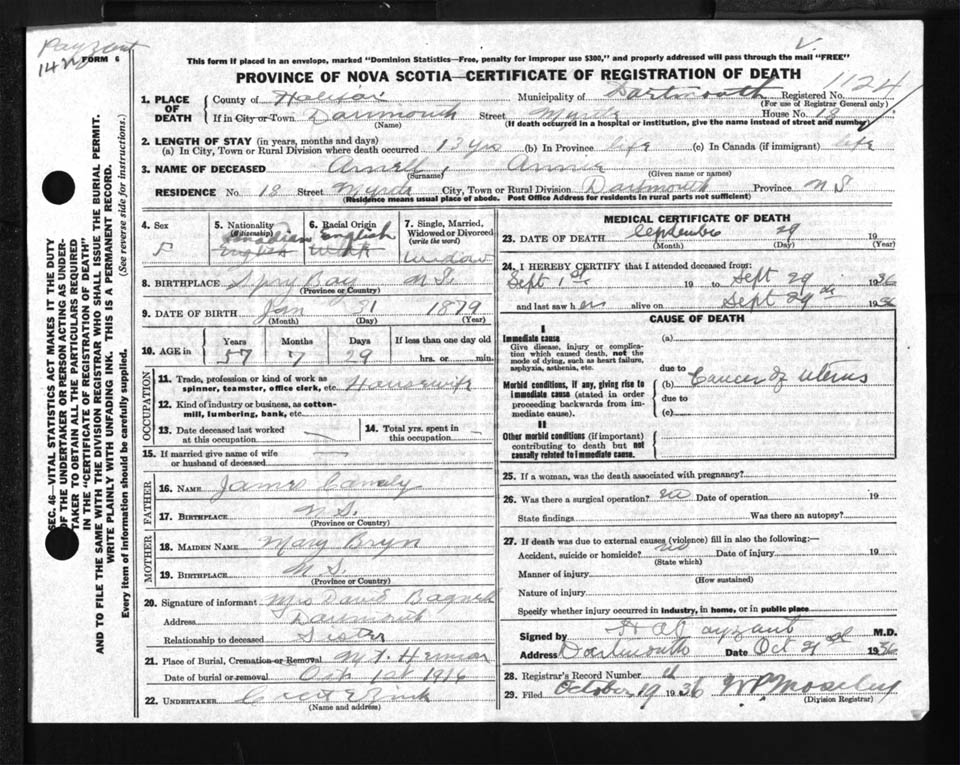 Payzant
FORM 6
This form if placed in an envelope, marked "Dominion Statistics—Free, penalty for improper use $300," and properly addressed will pass through the mail "FREE"
PROVINCE OF NOVA SCOTIA—CERTIFICATE OF REGISTRATION OF DEATH
1. PLACE OF DEATH
County of Halifax Municipality of Dartmouth Registered No. 1124
(For use of Registrar General only)
If in City or Town Dartmouth Street Myrtle House No. 18
(Name) (If death occurred in a hospital or institution, give the name instead of street and number)
2. LENGTH OF STAY (in years, months and days)
(a) In City, Town or Rural Division where death occurred 13 yrs (b) In Province life (c) In Canada (if immigrant) life
3. NAME OF DECEASED Arnell, Annie
(Surname) (Given name or names)
RESIDENCE No. 18 Street Myrtle City, Town or Rural Division Dartmouth Province N S
(Residence means usual place of abode. Post Office Address for residents in rural parts not sufficient)
4. Sex 5. Nationality (Citizenship) 6. Racial Origin 7. Single, Married, Widowed or Divorced (write the word)
Canadian English
F English Widow
8. BIRTHPLACE Spry Bay N.S.
(Province or Country)
9. DATE OF BIRTH Jan 31 1879
(Month) (Day) (Year)
10. AGE in Years Months Days If less than one day old
57 7 29 hrs. or min.
OCCUPATION
11. Trade, profession or kind of work as spinner, teamster, office clerk, etc. Housewife
12. Kind of industry or business, as cotton-mill, lumbering, bank, etc.
13. Date deceased last worked at this occupation 14. Total yrs. spent in this occupation
15. If married give name of wife or husband of deceased
FATHER
16. NAME James
17. BIRTHPLACE N S.
(Province or Country)
MOTHER
18. MAIDEN NAME Mary
19. BIRTHPLACE N S.
(Province or Country)
20. Signature of informant Mrs David
Address Dartmouth
Relationship to deceased Sister
21. Place of Burial, Cremation or Removal Mt. Hermon
Date of burial or removal Oct 1st
22. UNDERTAKER
(Name and address)
MEDICAL CERTIFICATE OF DEATH
23. DATE OF DEATH September 29 19
(Month) (Day) (Year)
24. I HEREBY CERTIFY that I attended deceased from:
Sept 1st 19 to Sept 29 1936
and last saw her alive on Sept 29th 1936
CAUSE OF DEATH
I
Immediate cause
Give disease, injury or complication which caused death, not the mode of dying, such as heart failure, asphyxia, asthenia, etc.
(a)
due to
Morbid conditions, if any, giving rise to immediate cause (stated in order proceeding backwards from immediate cause).
(b) Cancer of uterus
due to
(c)
II
Other morbid conditions (if important) contributing to death but not causally related to immediate cause.
25. If a woman, was the death associated with pregnancy?
26. Was there a surgical operation? no Date of operation 19
State findings Was there an autopsy?
27. If death was due to external causes (violence) fill in also the following:—
Accident, suicide or homicide? no Date of injury 19
(State which)
Manner of injury
(How sustained)
Nature of injury
Specify whether injury occurred in industry, in home, or in public place
Signed by H A Payzant M.D.
Address Dartmouth Date Oct 1936
28. Registrar's Record Number
29. Filed October 19 1936 Moseley
(Division Registrar)
SEC. 46—VITAL STATISTICS ACT MAKES IT THE DUTY
OF THE UNDERTAKER OR PERSON ACTING AS UNDER-
TAKER TO OBTAIN ALL THE PARTICULARS REQUIRED
IN THE "CERTIFICATE OF REGISTRATION OF DEATH"
AND TO FILE THE SAME WITH THE DIVISION REGISTRAR WHO SHALL ISSUE THE BURIAL PERMIT.
WRITE PLAINLY WITH UNFADING INK. THIS IS A PERMANENT RECORD.
Every item of information should be carefully supplied. (See reverse side for instructions.)